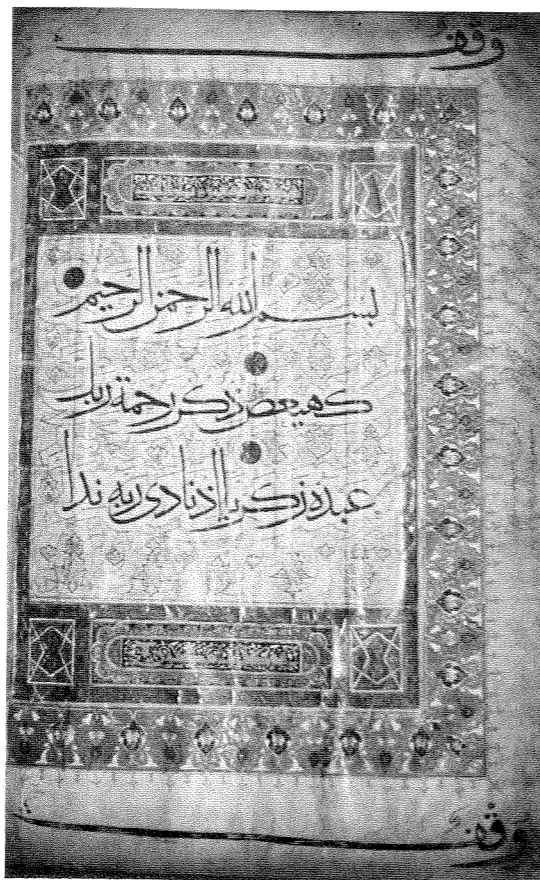 وقف
بسم الله الرحمن الرحيم
كهيعص ذكر رحمة ربك
عبده زكريا إذ نادى ربه ندا
وقف